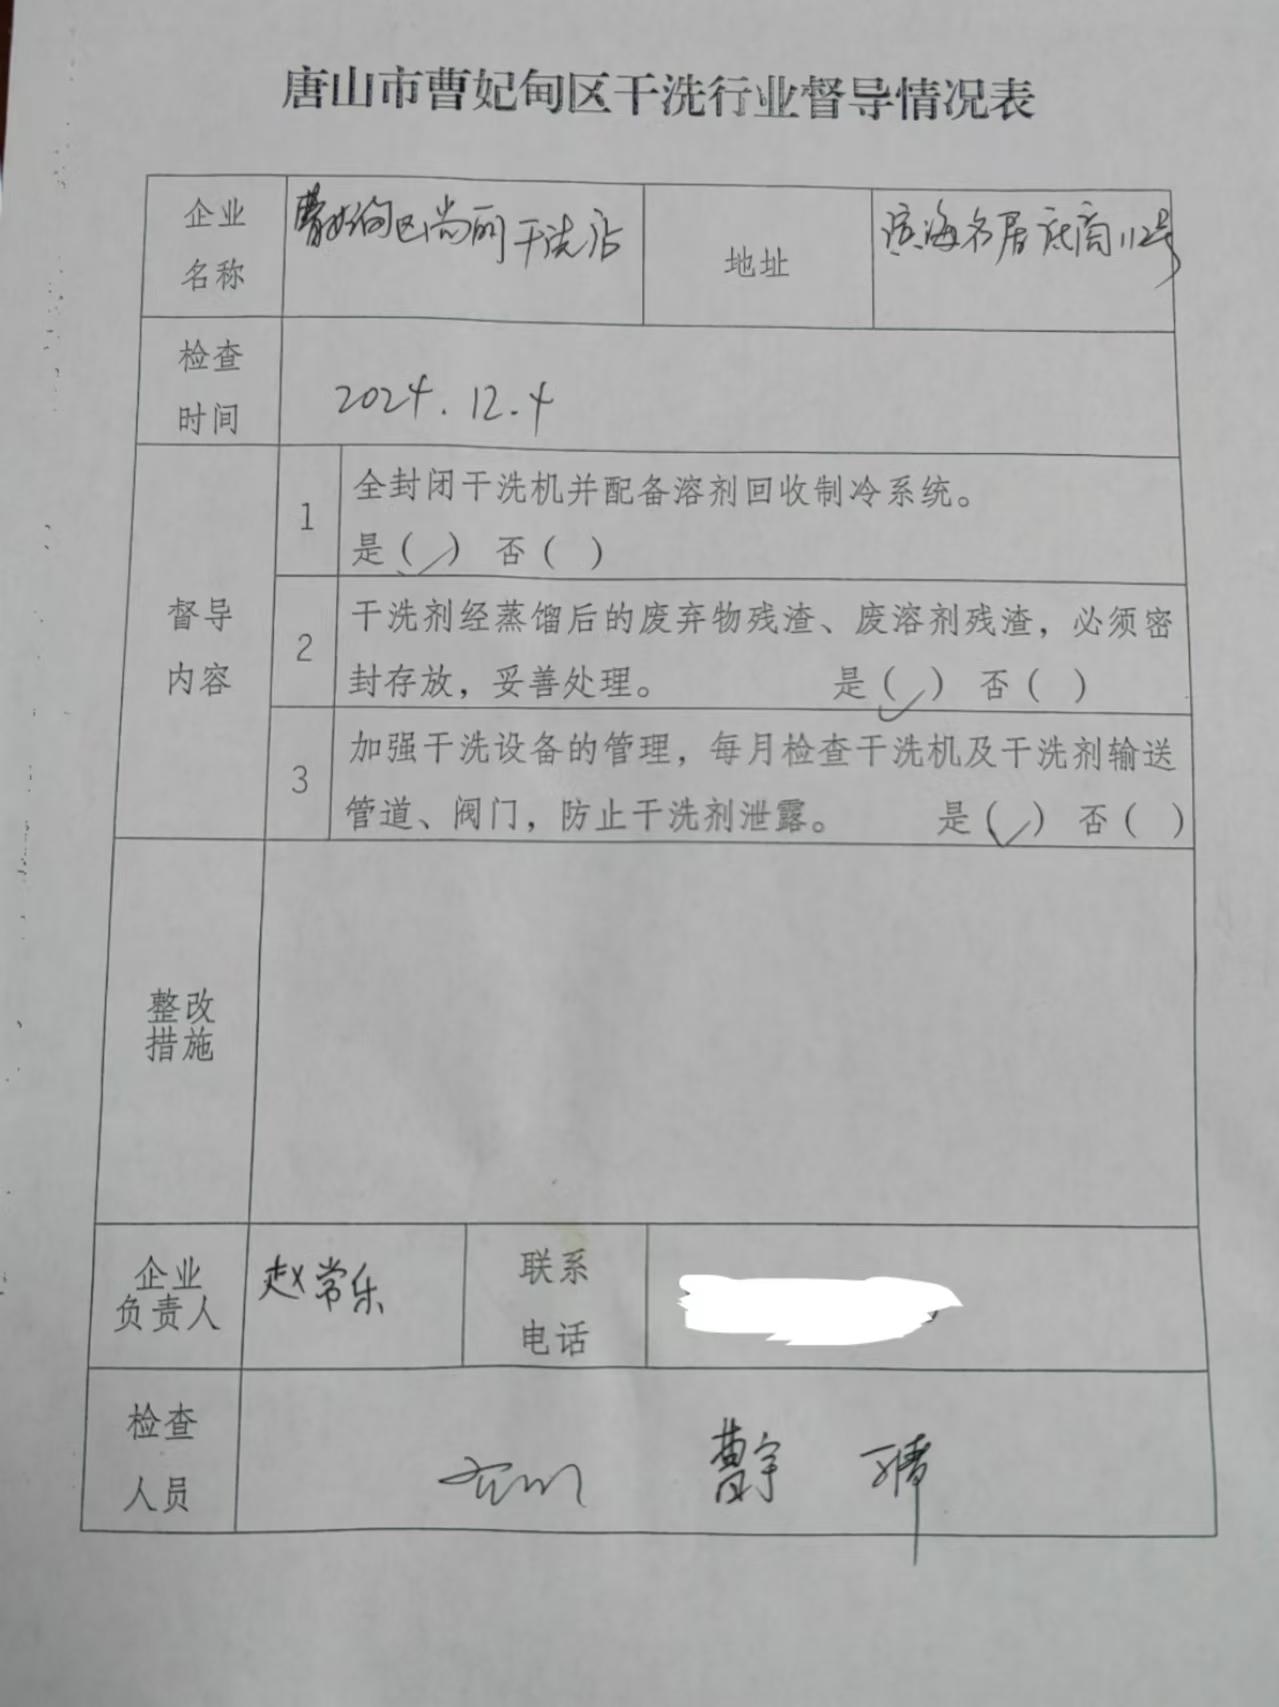 唐山市曹妃甸区干洗行业督导情况表
企业
名称
曹妃甸区尚丽干洗店
地址
滨海名居底商112号
检查
时间
2024.12.4
督导
内容
1
全封闭干洗机并配备溶剂回收制冷系统。
是(✓) 否( )
2
干洗剂经蒸馏后的废弃物残渣、废溶剂残渣，必须密
封存放，妥善处理。 是(✓) 否( )
3
加强干洗设备的管理，每月检查干洗机及干洗剂输送
管道、阀门，防止干洗剂泄露。 是(✓) 否( )
整改
措施
企业
负责人
赵常乐
联系
电话
检查
人员
曹宇